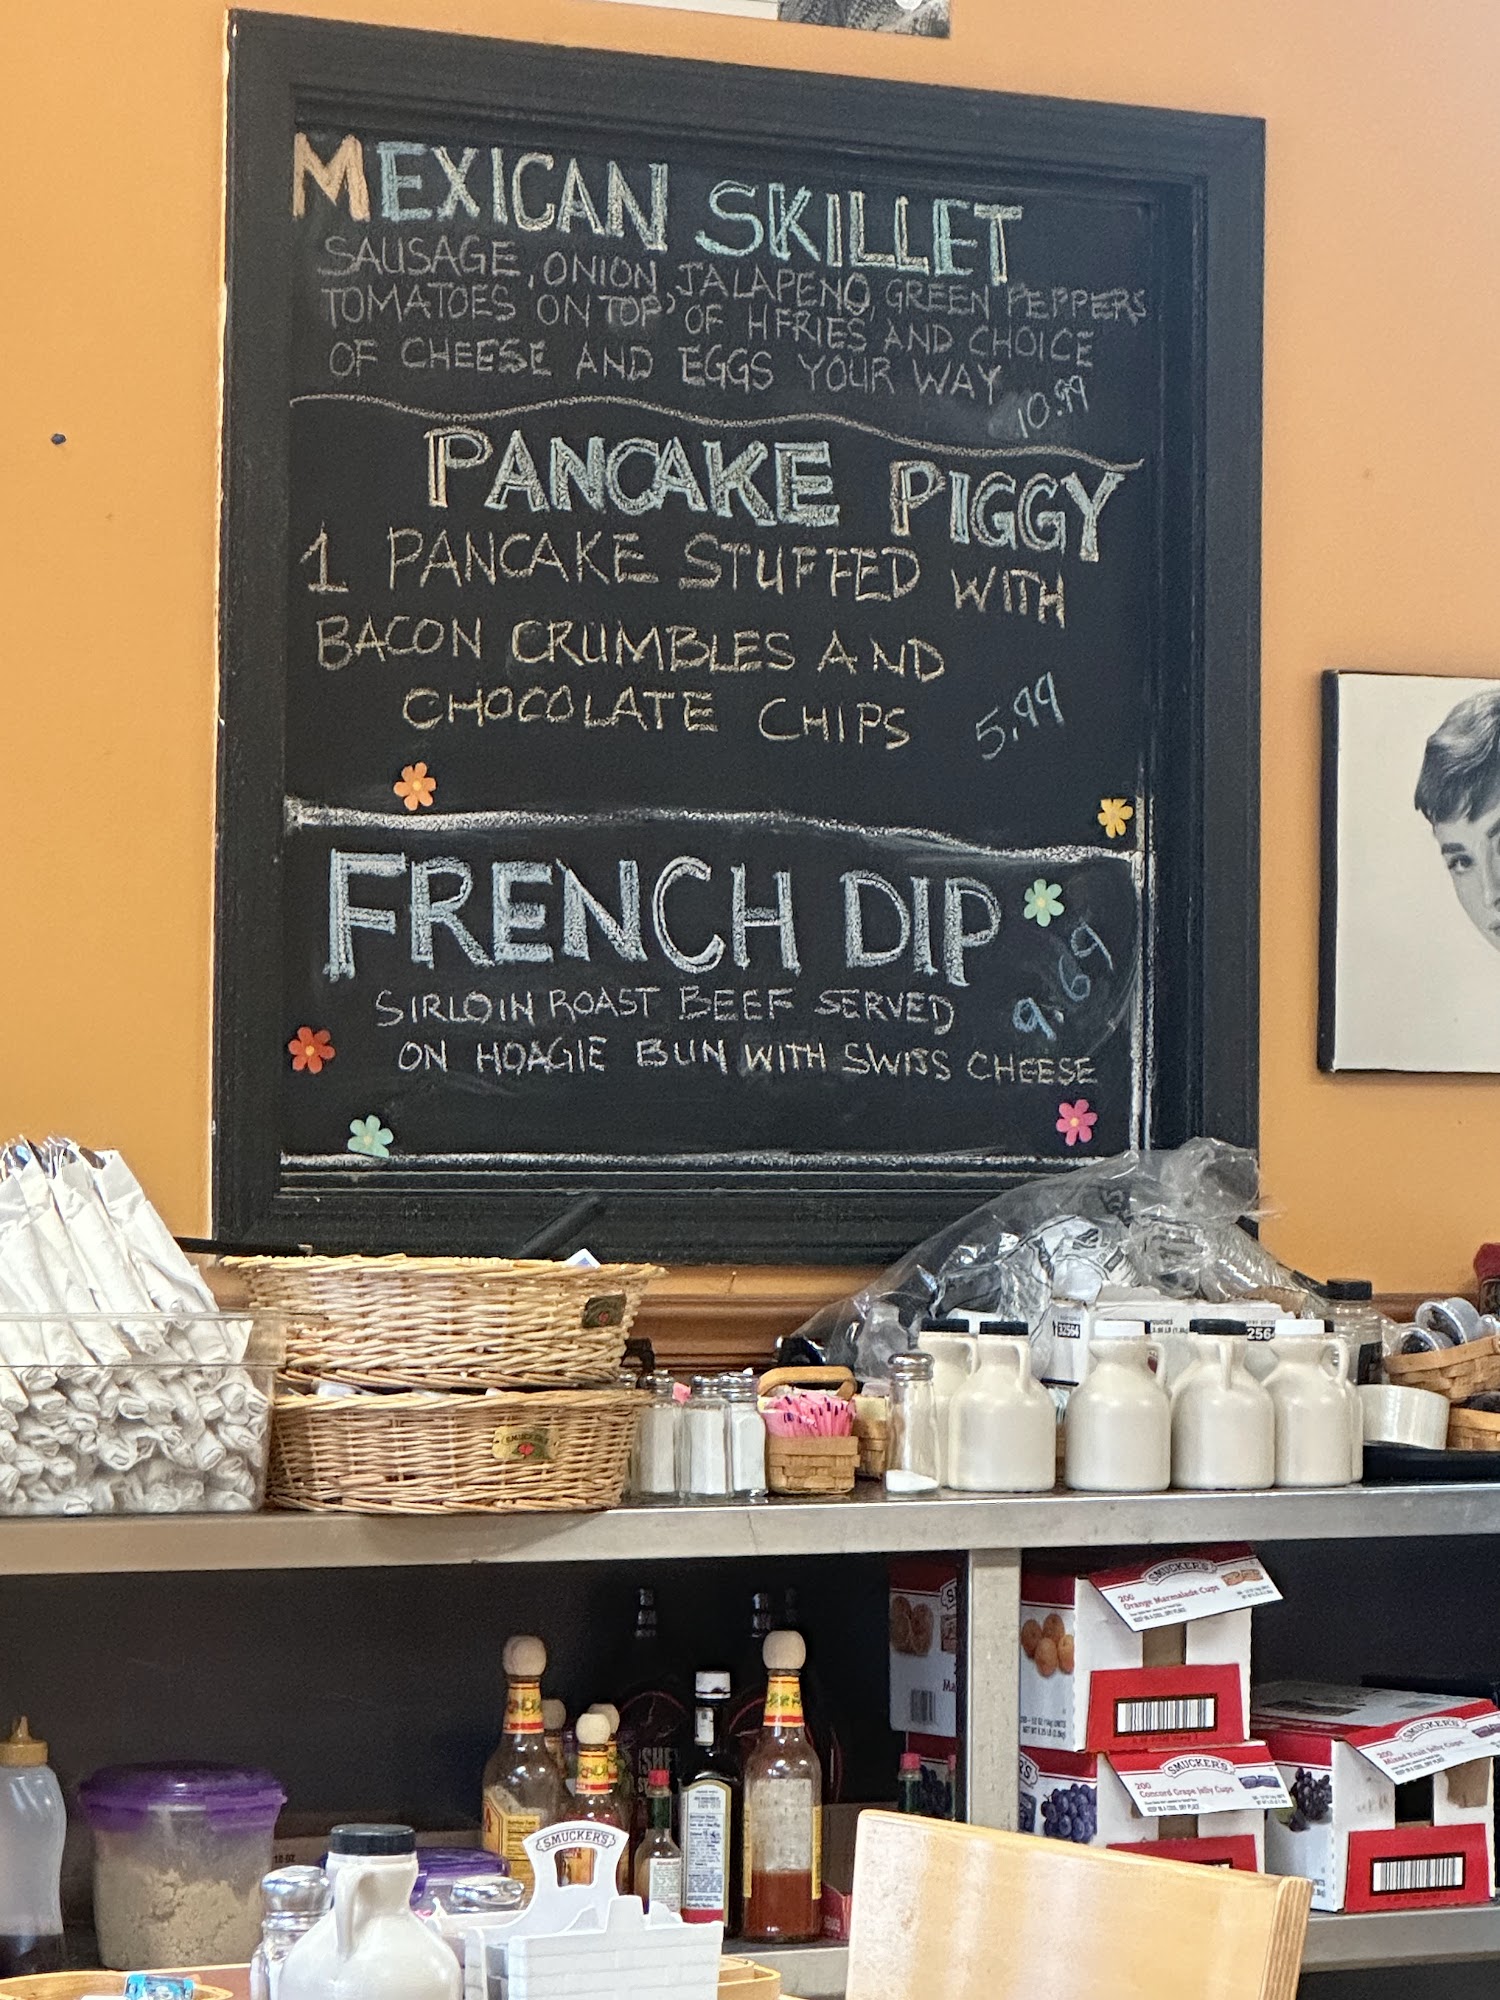 MEXICAN SKILLET
SAUSAGE, ONION, JALAPENO, GREEN PEPPERS
TOMATOES ON TOP OF HFRIES AND CHOICE
OF CHEESE AND EGGS YOUR WAY
10.99
PANCAKE PIGGY
1 PANCAKE STUFFED WITH
BACON CRUMBLES AND
CHOCOLATE CHIPS
5.99
FRENCH DIP
9.69
SIRLOIN ROAST BEEF SERVED
ON HOAGIE BUN WITH SWISS CHEESE
32564
256
SMUCKER'S
SMUCKER'S
200
Orange Marmalade Cups
KEEP IN A COOL, DRY PLACE
SMUCKER'S
200
Concord Grape Jelly Cups
KEEP IN A COOL, DRY PLACE
SMUCKER'S
200
Mixed Fruit Jelly Cups
SMUCKER'S